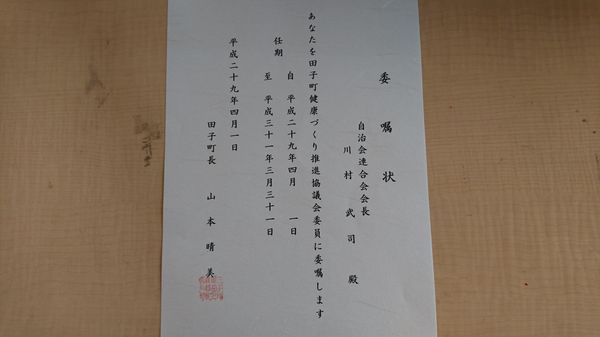 委嘱状
自治会連合会会長
川村武司殿
あなたを田子町健康づくり推進協議会委員に委嘱します
任期 自 平成二十九年四月 一日
至 平成三十一年三月三十一日
平成二十九年四月一日
田子町長 山本晴美